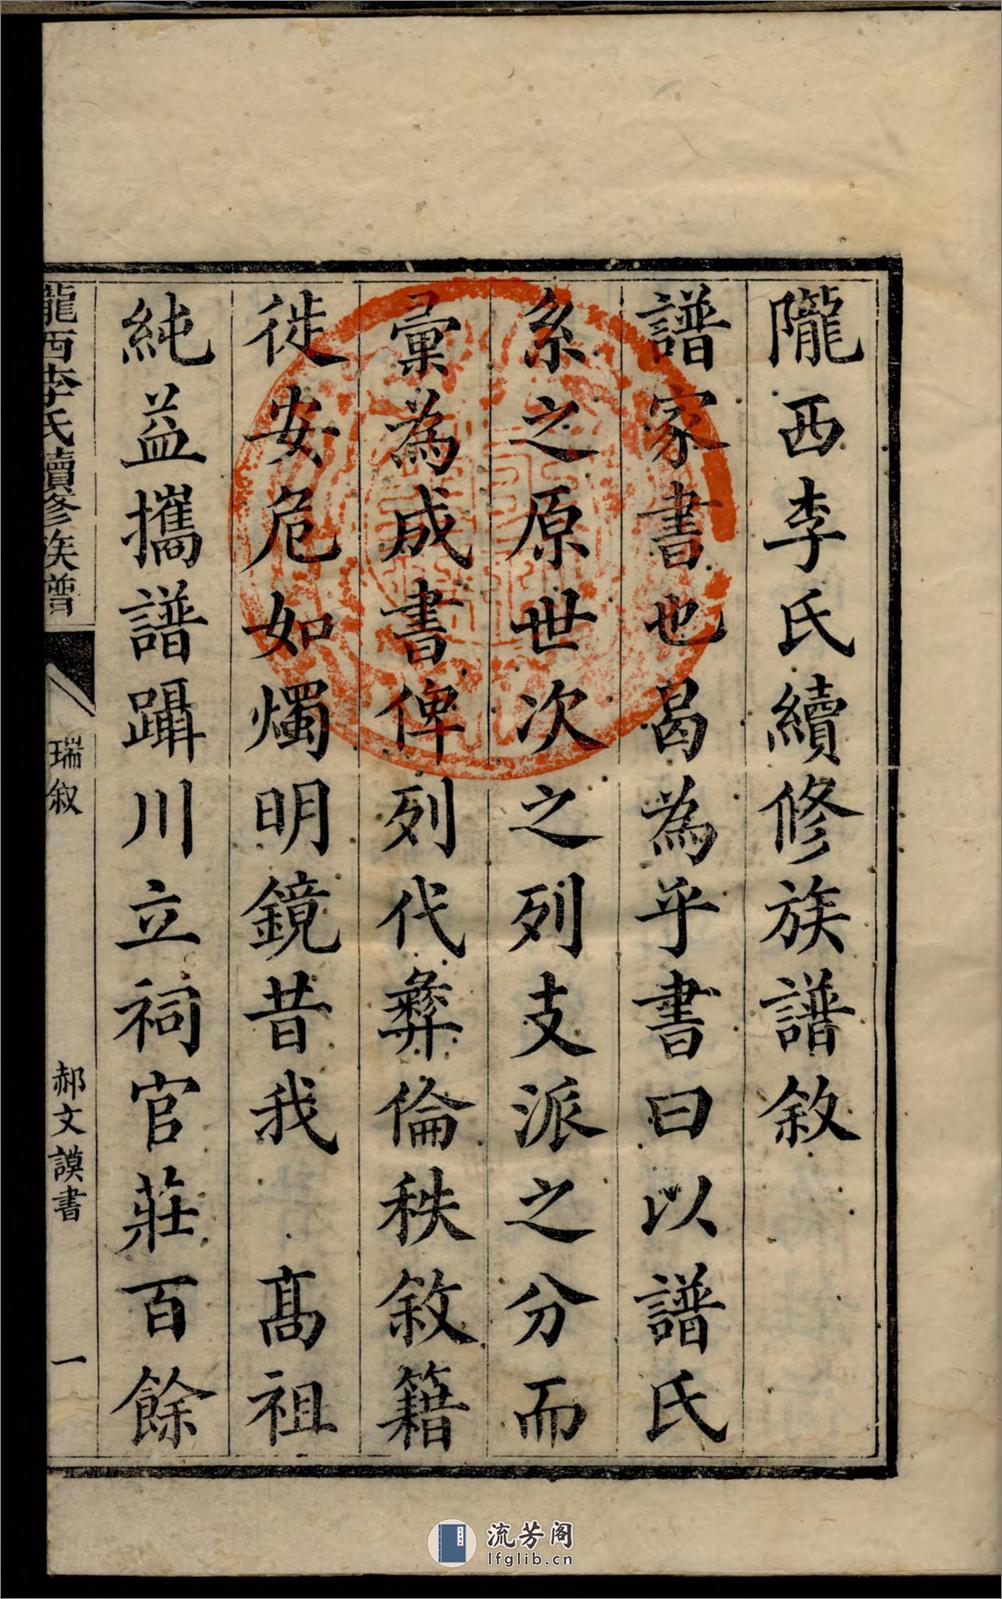 隴西李氏續修族譜敘
譜家書也曷為乎書曰以譜氏
系之原世次之列支派之分而
彙為成書俾列代彝倫秩敘籍
徙安危如燭明鏡昔我 髙祖
純益攜譜躡川立祠官莊百餘
隴西李氏續修族譜
瑞叙
郝文謨書
一
流芳阁
lfglib.cn